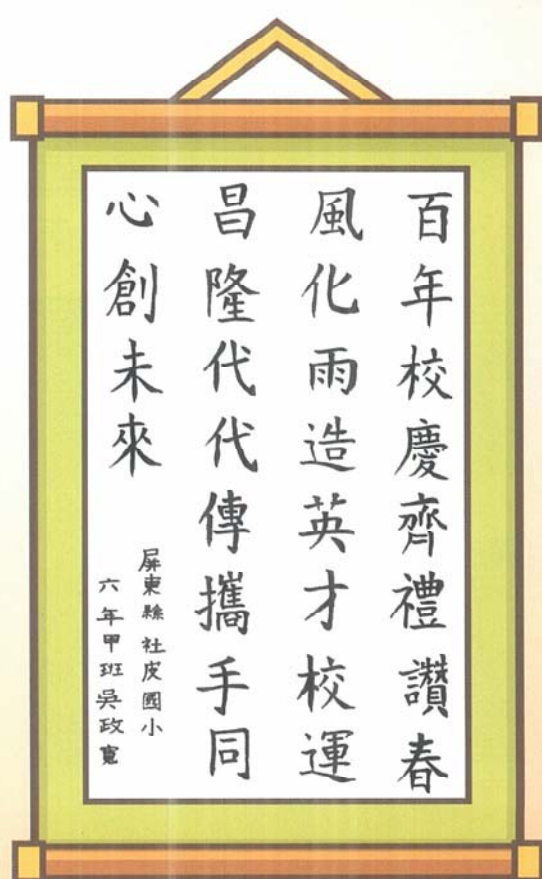 百年校慶齊禮讚春
風化雨造英才校運
昌隆代代傳攜手同
心創未來
屏東縣社皮國小
六年甲班吳政寬